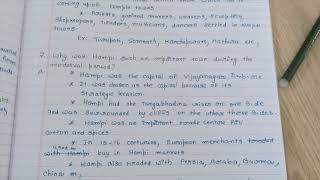 coming up of temple towns
* Priests, garland makers, weavers, sculptors,
shopkeepers, vendors, musicians, dancers settled in temple
towns
Ex: Tirupati, Somnath, Kanchipuram, Madurai etc,
2. Why was Hampi such an important town during the
medieval period?
A. * Hampi was the capital of Vijaynagara Empire.
* It was chosen as the capital because of its
strategic location.
* Hampi had the Tungabhadra river on one side
and was surrounded by cliffs on the other three sides.
* Hampi was an important trade centre for
cotton and spices
* In 15-16 centuries, European merchants traded
used to
with Hampi buy in Hampi markets
* Hampi also traded with Persia, Arabia,
China etc